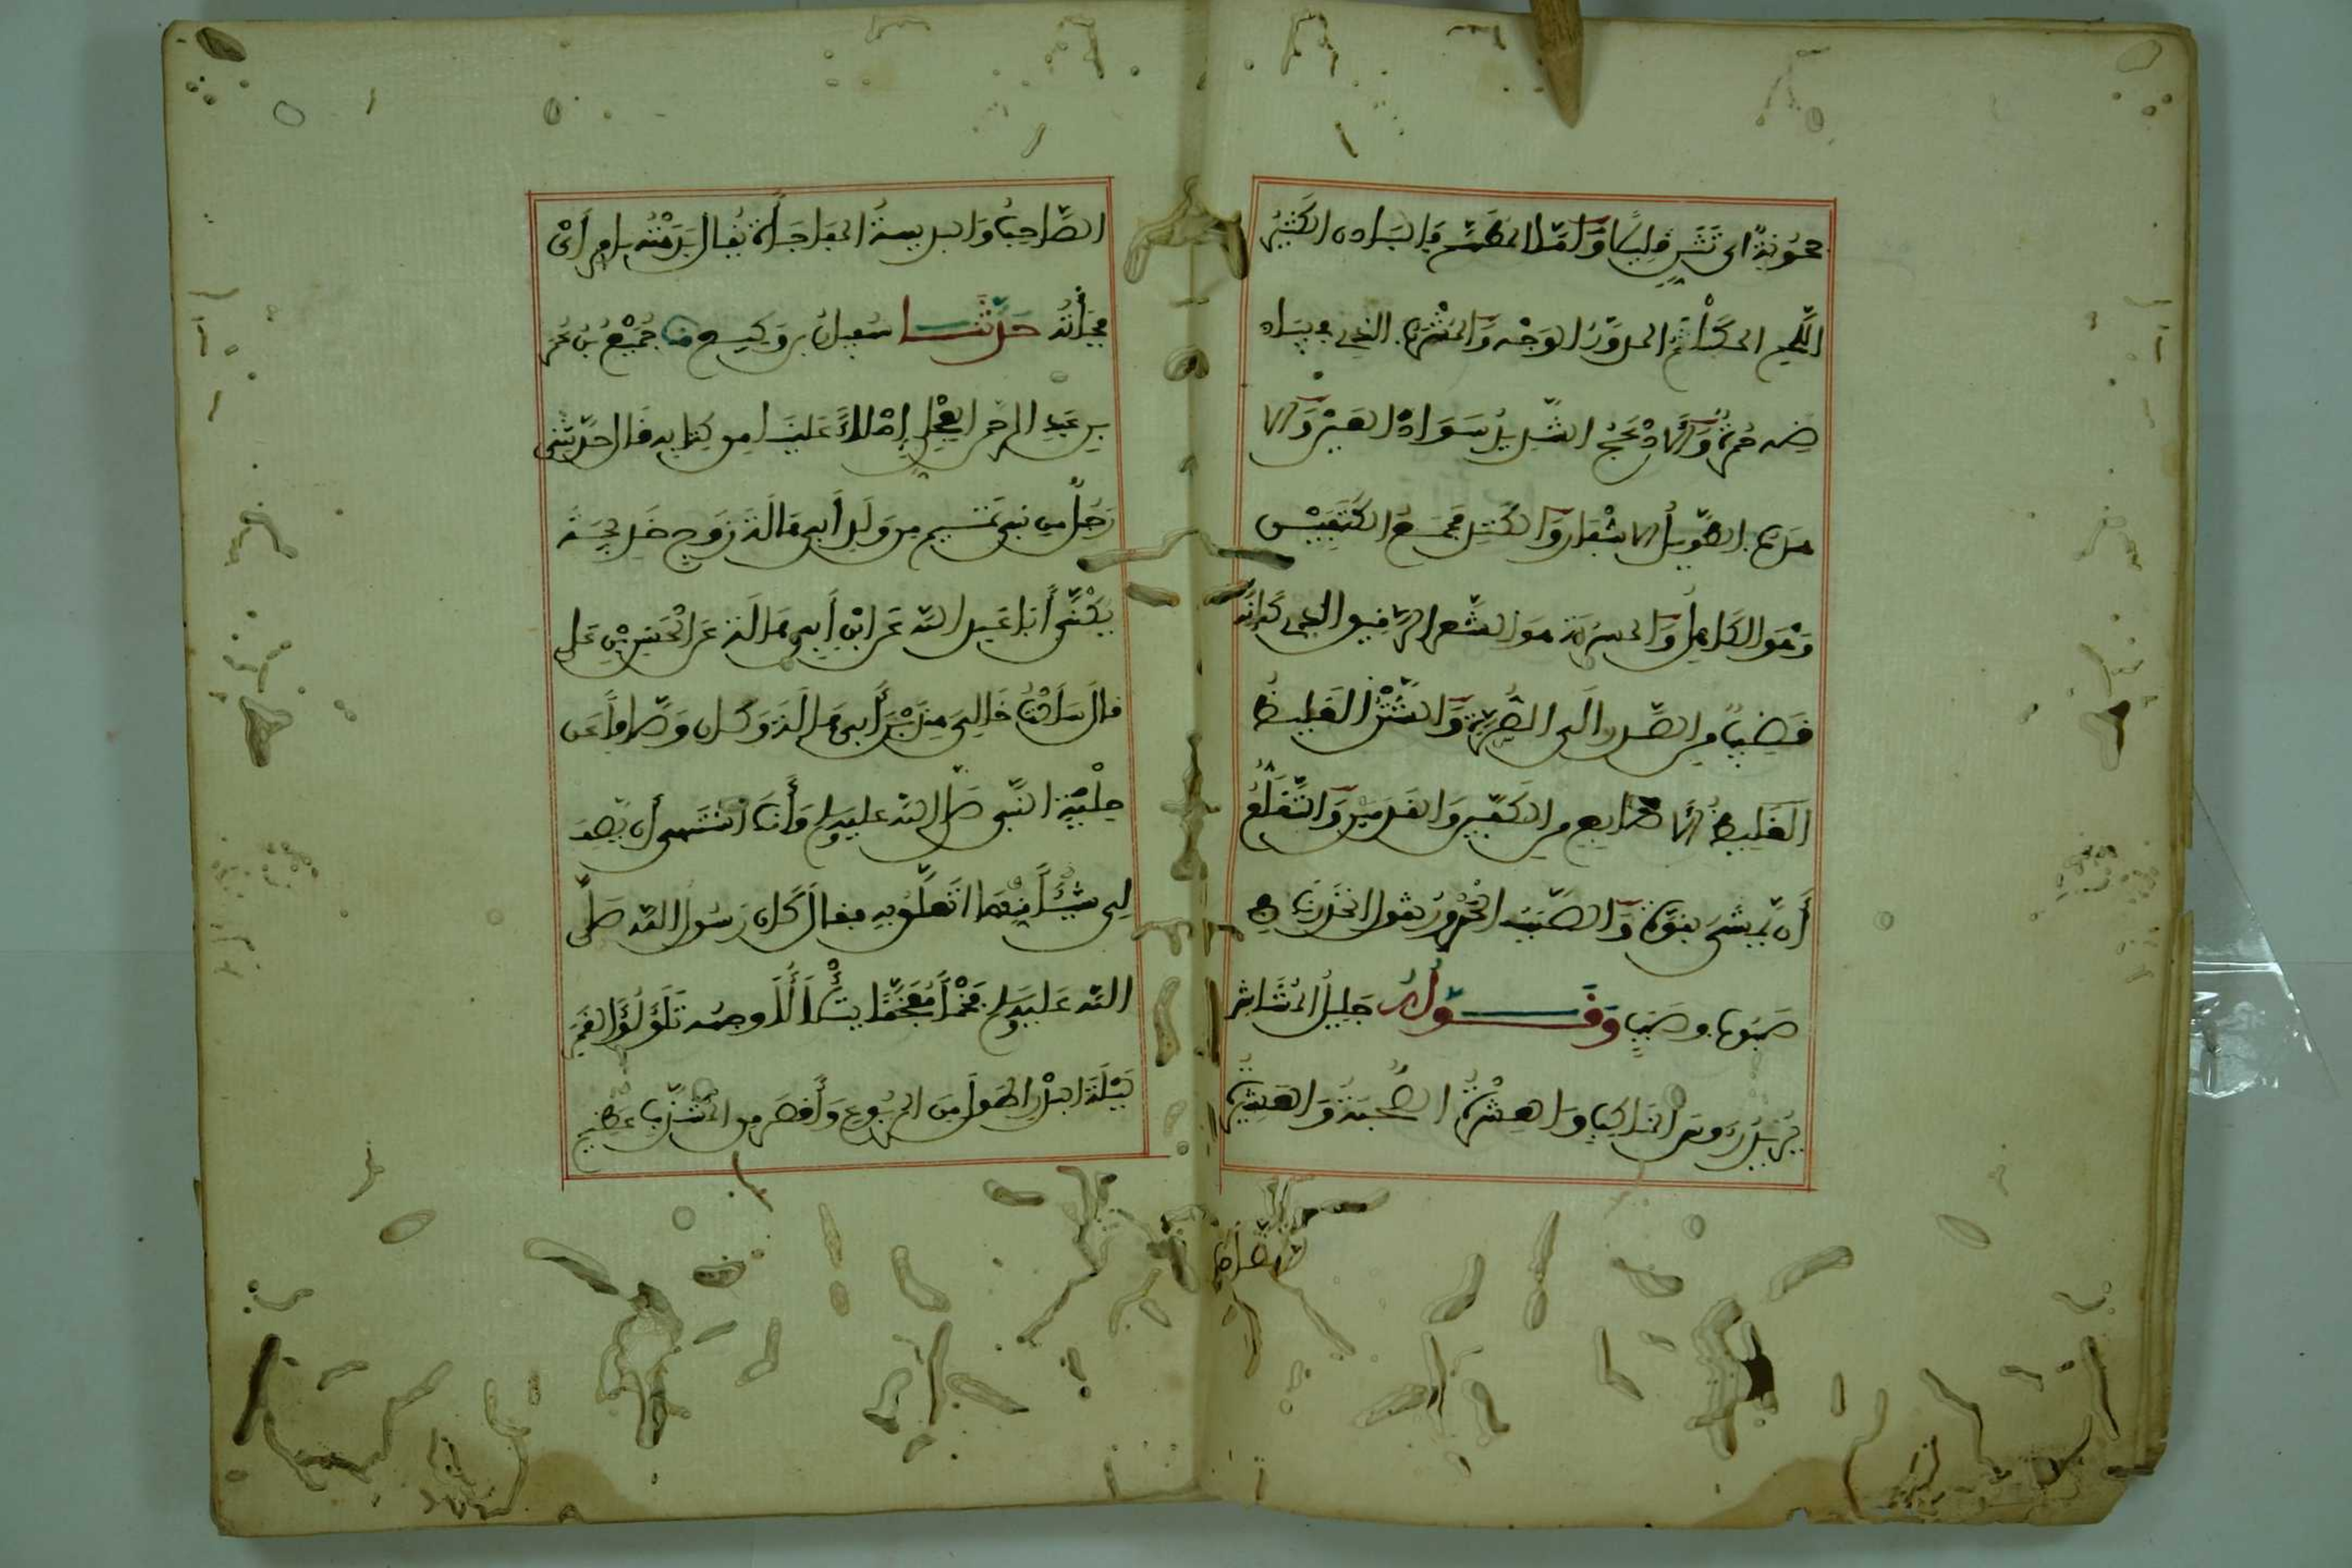 حُجُونَةٌ اى تَثَنٍّ قَلِيلًا وَأَمَّا المُطَهَّمُ فَالبَادن الكَثِيرُ
اللَّحمِ المُكَلْثَمُ المدوَّرُ الوَجْه وَالمُشْرَبُ الذى فى بياـ
ضه حُمرةٌ وَالأَدْعَجُ الشَّديدُ سَوَادِ العَيْن وَالأَ
هدَبُ الطَّويلُ الأشْفَار وَالكَتِدُ مُجْتَمَعُ الكَتِفَيْن
وَهُوَ الكَاهِلُ وَالمسرُبَة هوَ الشَّعر الدَّقيق الذى كَأنَّه
قَضِيبٌ من الصَّدر الَى السُّرَّةِ وَالشَّثْنُ الغَلِيظُ
الغَلِيظُ الأَصَابِع من الكَفَّين وَالقَدَمين وَالتَّقَلُّعُ
أَن يَمشىَ بقوَّة وَالصَّبَبُ الحُدُورُ يقول انحَدَرنَا فى
صَبُوب وصَبَبٍ وَقَـــوْلُهُ جَلِيلُ المُشَاشِ
يُرِيدُ رءوسَ المنَاكِبِ وَالعِشْرَةُ الصُّحبَةُ وَالعَشِيرُ
الصَّاحِبُ
الصَّاحِبُ وَالبديهةُ المفَاجَأةُ يُقَال بَدَهْتُه بأمرٍ أىْ
فَجَأْتُهُ حَدَّثَنَــا سُفيانُ بن وَكيــع ثنا جُمَيْعُ بنُ عُمَر
بنِ عَبدِ الرحمن العِجْلِى إِمْلاءً عَلينَا من كِتابِه قَال حدَّثنى
رَجُلٌ من بَنِى تَميم من وَلَدِ أَبِى هَالَةَ زَوجِ خَديجَةَ
يُكْنَّى أَبَا عَبد الله عَن ابْنِ أَبِى هَالَةَ عَن الحَسَنِ بْنِ عَلى
قال سَأَلْتُ خَالِىَ هِندَ بْنَ أَبِى هَالَةَ وَكان وَصَّافًا عَن
حِلْيَةِ النَّبى صَلى الله عليه وسلم وَأَنَا أشتَهى أن يَصِفَ
لِى شَيْئًا مِنْهَا أتَعَلَّقُ بِهِ فقال كَان رَسُول الله صَلَّى
الله عَليه وسَلم فَخْمًا مُفَخَّمًا يَتَلَأْلَأُ وجهُه تَلَؤلُؤَ القَمَرِ
لَيْلَةَ البَدْرِ أطْوَل منَ المربُوعِ وَأَقصَر من المُشَذَّبِ عَظِيم